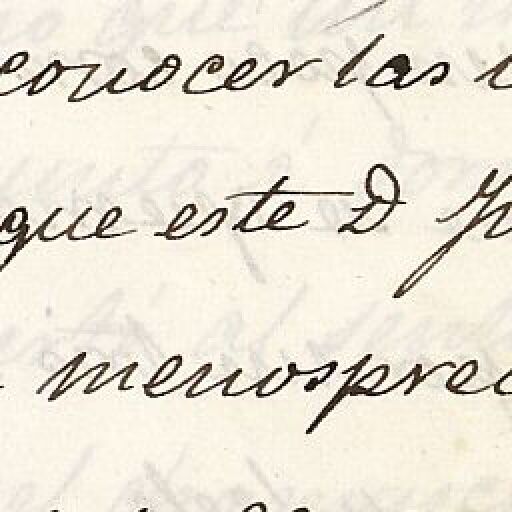 conocer las
que este D
menosprec